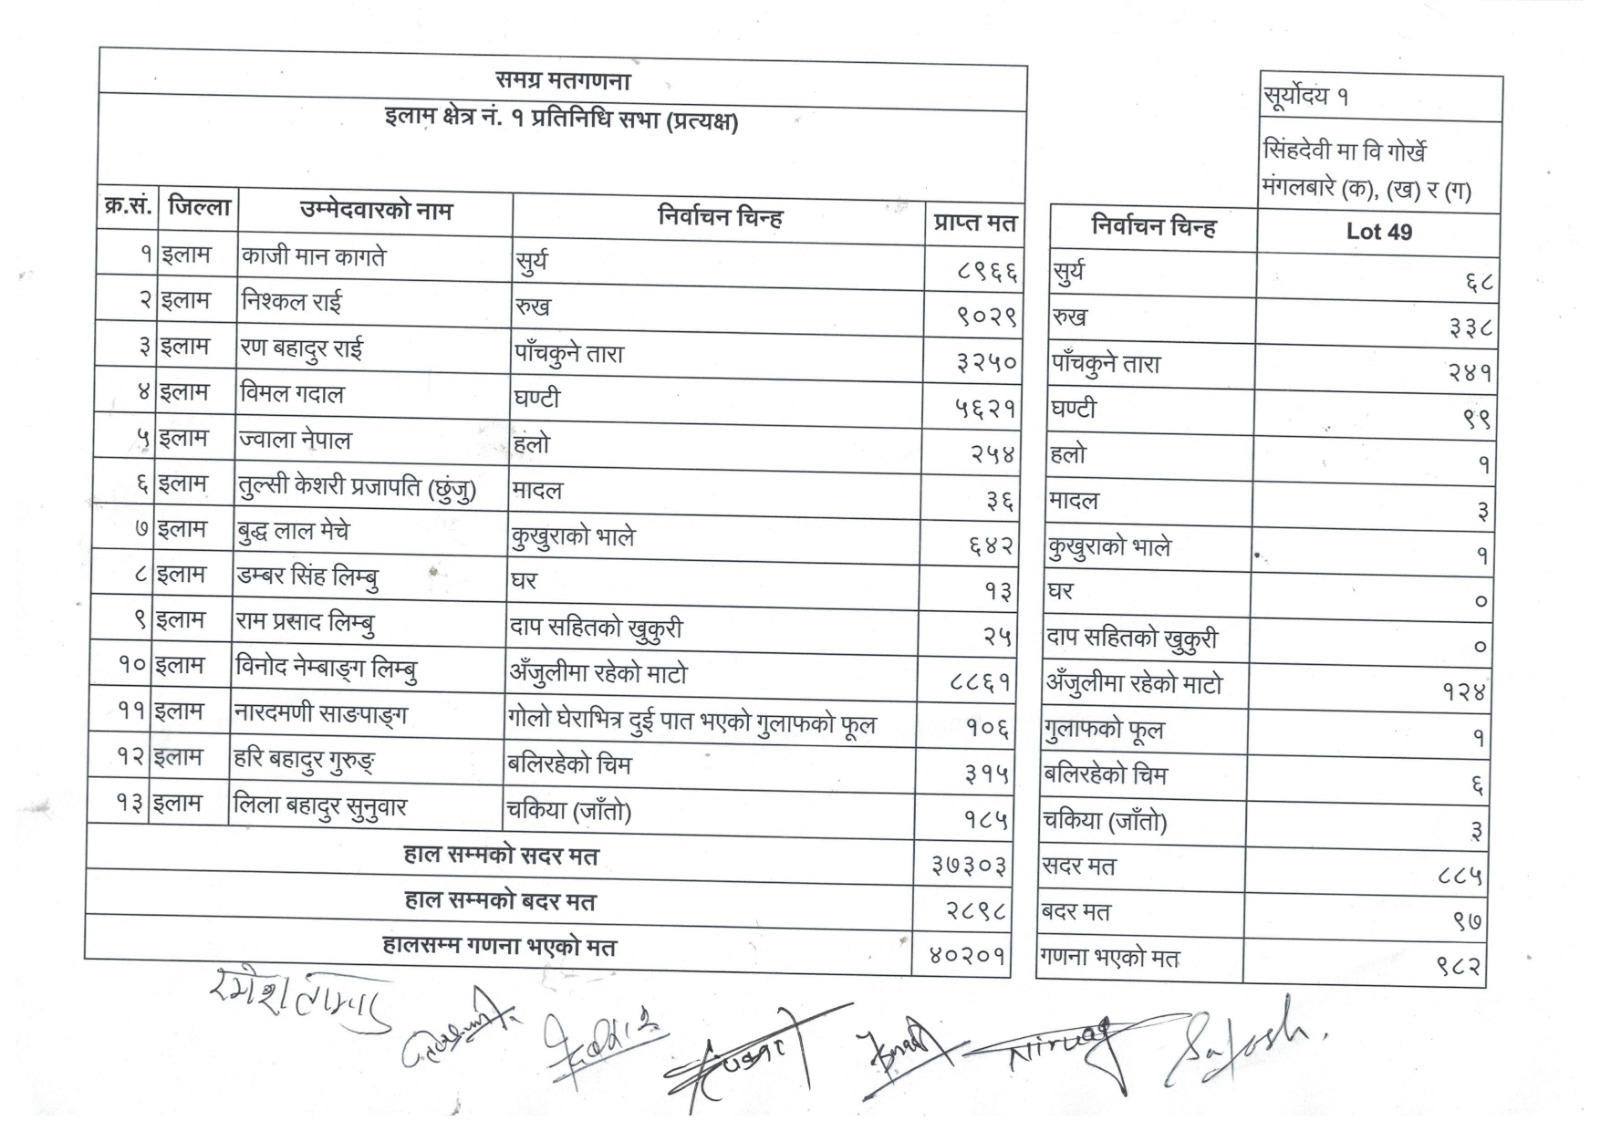 समग्र मतगणना
इलाम क्षेत्र नं. १ प्रतिनिधि सभा (प्रत्यक्ष)
क्र.सं. जिल्ला उम्मेदवारको नाम निर्वाचन चिन्ह प्राप्त मत
१ इलाम काजी मान कागते सुर्य ८९६६
२ इलाम निश्कल राई रुख ९०२९
३ इलाम रण बहादुर राई पाँचकुने तारा ३२५०
४ इलाम विमल गदाल घण्टी ५६२१
५ इलाम ज्वाला नेपाल हलो २५४
६ इलाम तुल्सी केशरी प्रजापति (छुंजु) मादल ३६
७ इलाम बुद्ध लाल मेचे कुखुराको भाले ६४२
८ इलाम डम्बर सिंह लिम्बु घर १३
९ इलाम राम प्रसाद लिम्बु दाप सहितको खुकुरी २५
१० इलाम विनोद नेम्बाङ्ग लिम्बु अँजुलीमा रहेको माटो ८८६१
११ इलाम नारदमणी साङपाङ्ग गोलो घेराभित्र दुई पात भएको गुलाफको फूल १०६
१२ इलाम हरि बहादुर गुरुङ् बलिरहेको चिम ३१५
१३ इलाम लिला बहादुर सुनुवार चकिया (जाँतो) १८५
हाल सम्मको सदर मत ३७३०३
हाल सम्मको बदर मत २८९८
हालसम्म गणना भएको मत ४०२०१
सूर्योदय १
सिंहदेवी मा वि गोर्खे
मंगलबारे (क), (ख) र (ग)
निर्वाचन चिन्ह Lot 49
सुर्य ६८
रुख ३३८
पाँचकुने तारा २४१
घण्टी ९९
हलो १
मादल ३
कुखुराको भाले १
घर ०
दाप सहितको खुकुरी ०
अँजुलीमा रहेको माटो १२४
गुलाफको फूल १
बलिरहेको चिम ६
चकिया (जाँतो) ३
सदर मत ८८५
बदर मत ९७
गणना भएको मत ९८२